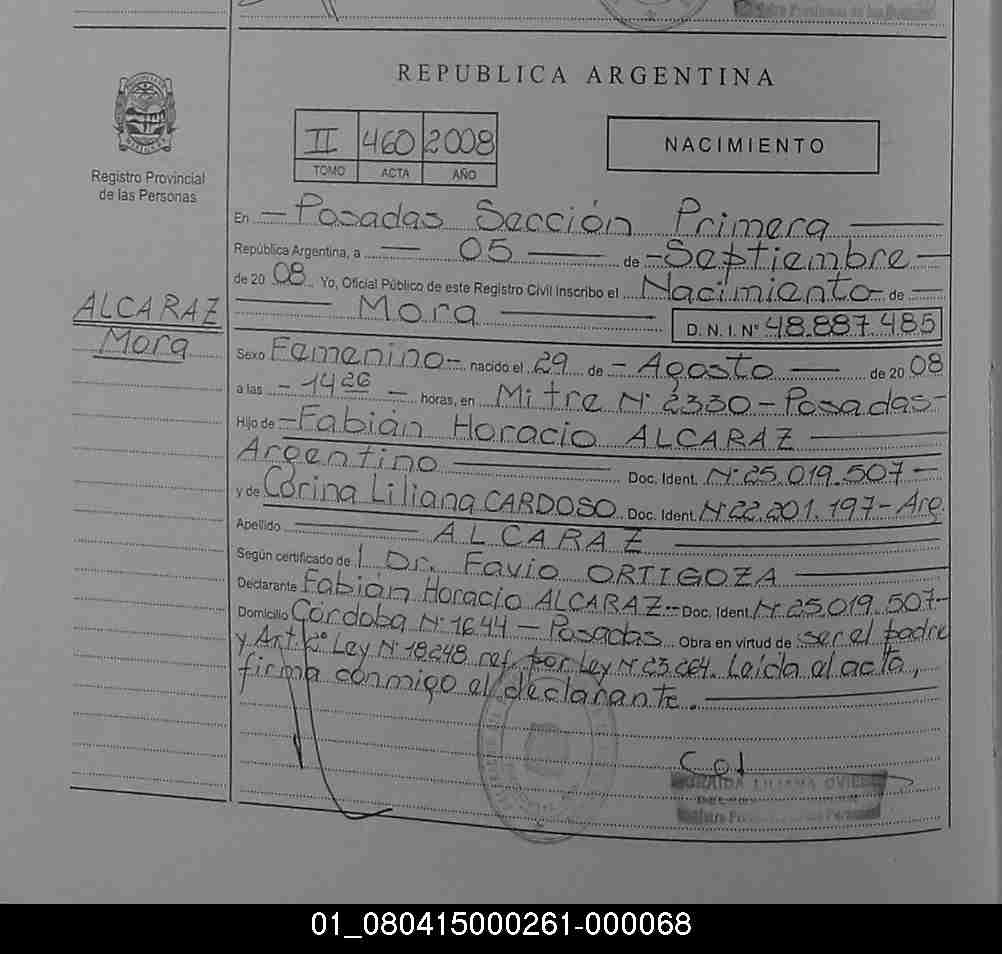 REPUBLICA ARGENTINA
II 460 2008
TOMO ACTA AÑO
NACIMIENTO
Registro Provincial
de las Personas
ALCARAZ
Mora
En - Posadas Sección Primera
República Argentina, a - 05 - de - Septiembre -
de 20 08 Yo, Oficial Público de este Registro Civil Inscribo el Nacimiento de -
Mora D.N.I.N° 48.887.485
Sexo Femenino - nacido el 29 de - Agosto - de 20 08
a las - 14 20 - horas, en Mitre N° 2330 - Posadas -
Hijo de - Fabián Horacio ALCARAZ
Argentino Doc. Ident. N° 25.019.507 -
y de Corina Liliana CARDOSO Doc. Ident. N° 22.201.197 - Arg.
Apellido ALCARAZ
Según certificado de l Dr. Favio ORTIGOZA
Declarante Fabián Horacio ALCARAZ - Doc. Ident. N° 25.019.507 -
Domicilio Córdoba N° 1644 - Posadas Obra en virtud de ser el padre
y Art. 2° Ley N° 18248 ref. por Ley N° 23.264. Leída el acta,
firma conmigo el declarante.
LILIANA
01_080415000261-000068